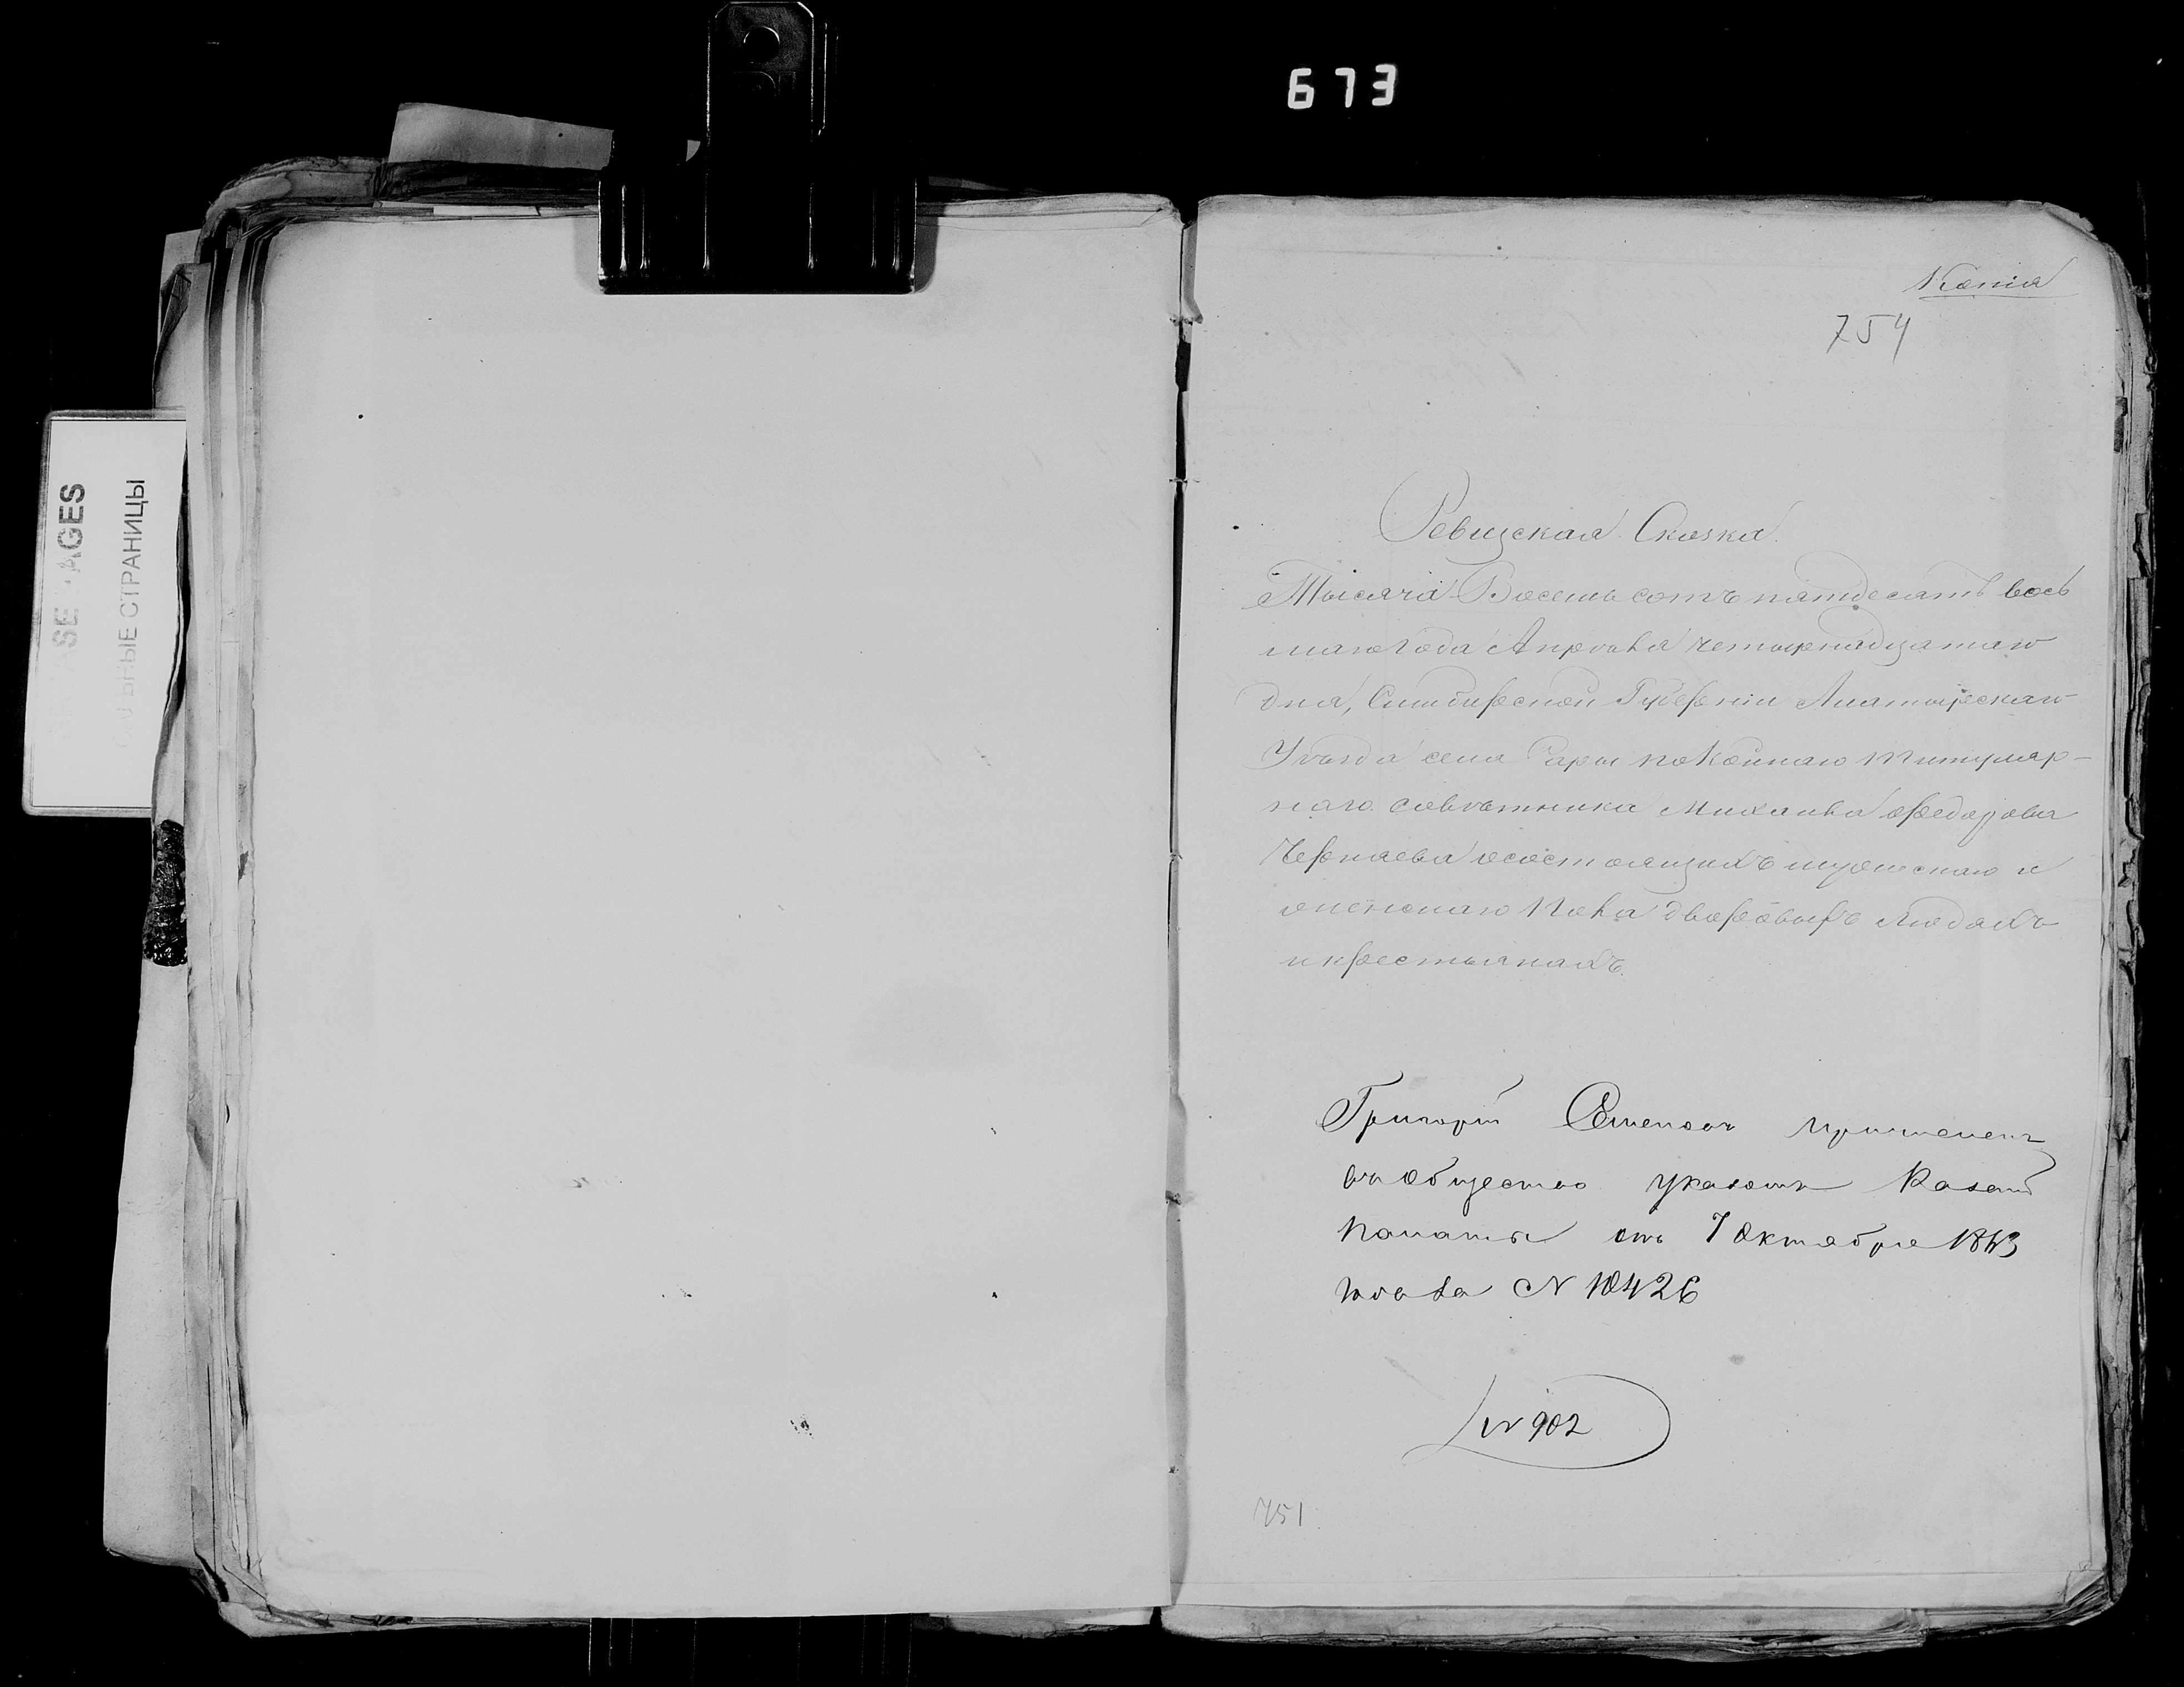 673
Копія
754
Ревизская Сказка.
Тысяча Восемь сотъ пятдесятъ вось
маго Года Апрѣля четырнадцатаго
дня, Симбирской Губерніи Алатырскаго
Уѣзда села Гарт покойнаго Титуляр-
наго совѣтника Михаила Федорова
Черняева осостоящихъ мужескаго и
женскаго Пола дворовыхъ людяхъ
икрестьянахъ.
Григорій Семеновъ причисленъ
въ общество указомъ Казен
Палаты отъ 7 Октября 1863
года N 10426
N 902
751
AGES
ЫЕ СТРАНИЦЫ